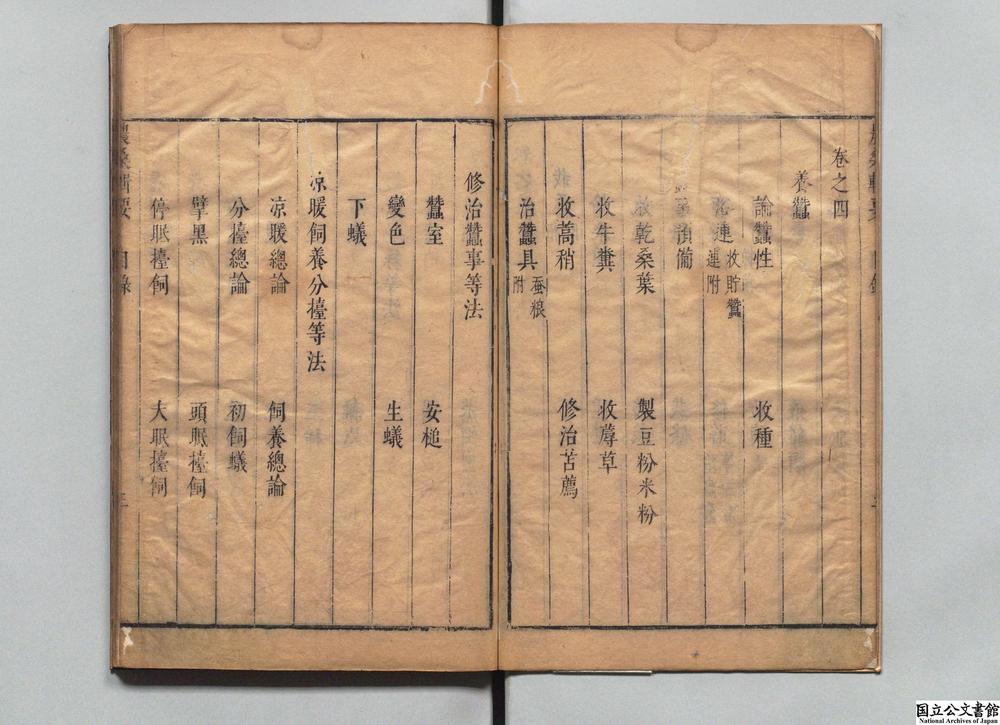 卷之四
養蠶
論蠶性 收種
浴連 收貯蠶連附
蠶事預備
收乾桑葉 製豆粉米粉
收牛糞 收蓐草
收蒿稍 修治苫薦
治蠶具 蚕粮附
修治蠶事等法
蠶室 安槌
變色 生蟻
下蟻
凉暖飼養分擡等法
凉暖總論 飼養總論
分擡總論 初飼蟻
擘黑 頭眠擡飼
停眠擡飼 大眠擡飼
農桑輯要 目錄
国立公文書館
National Archives of Japan